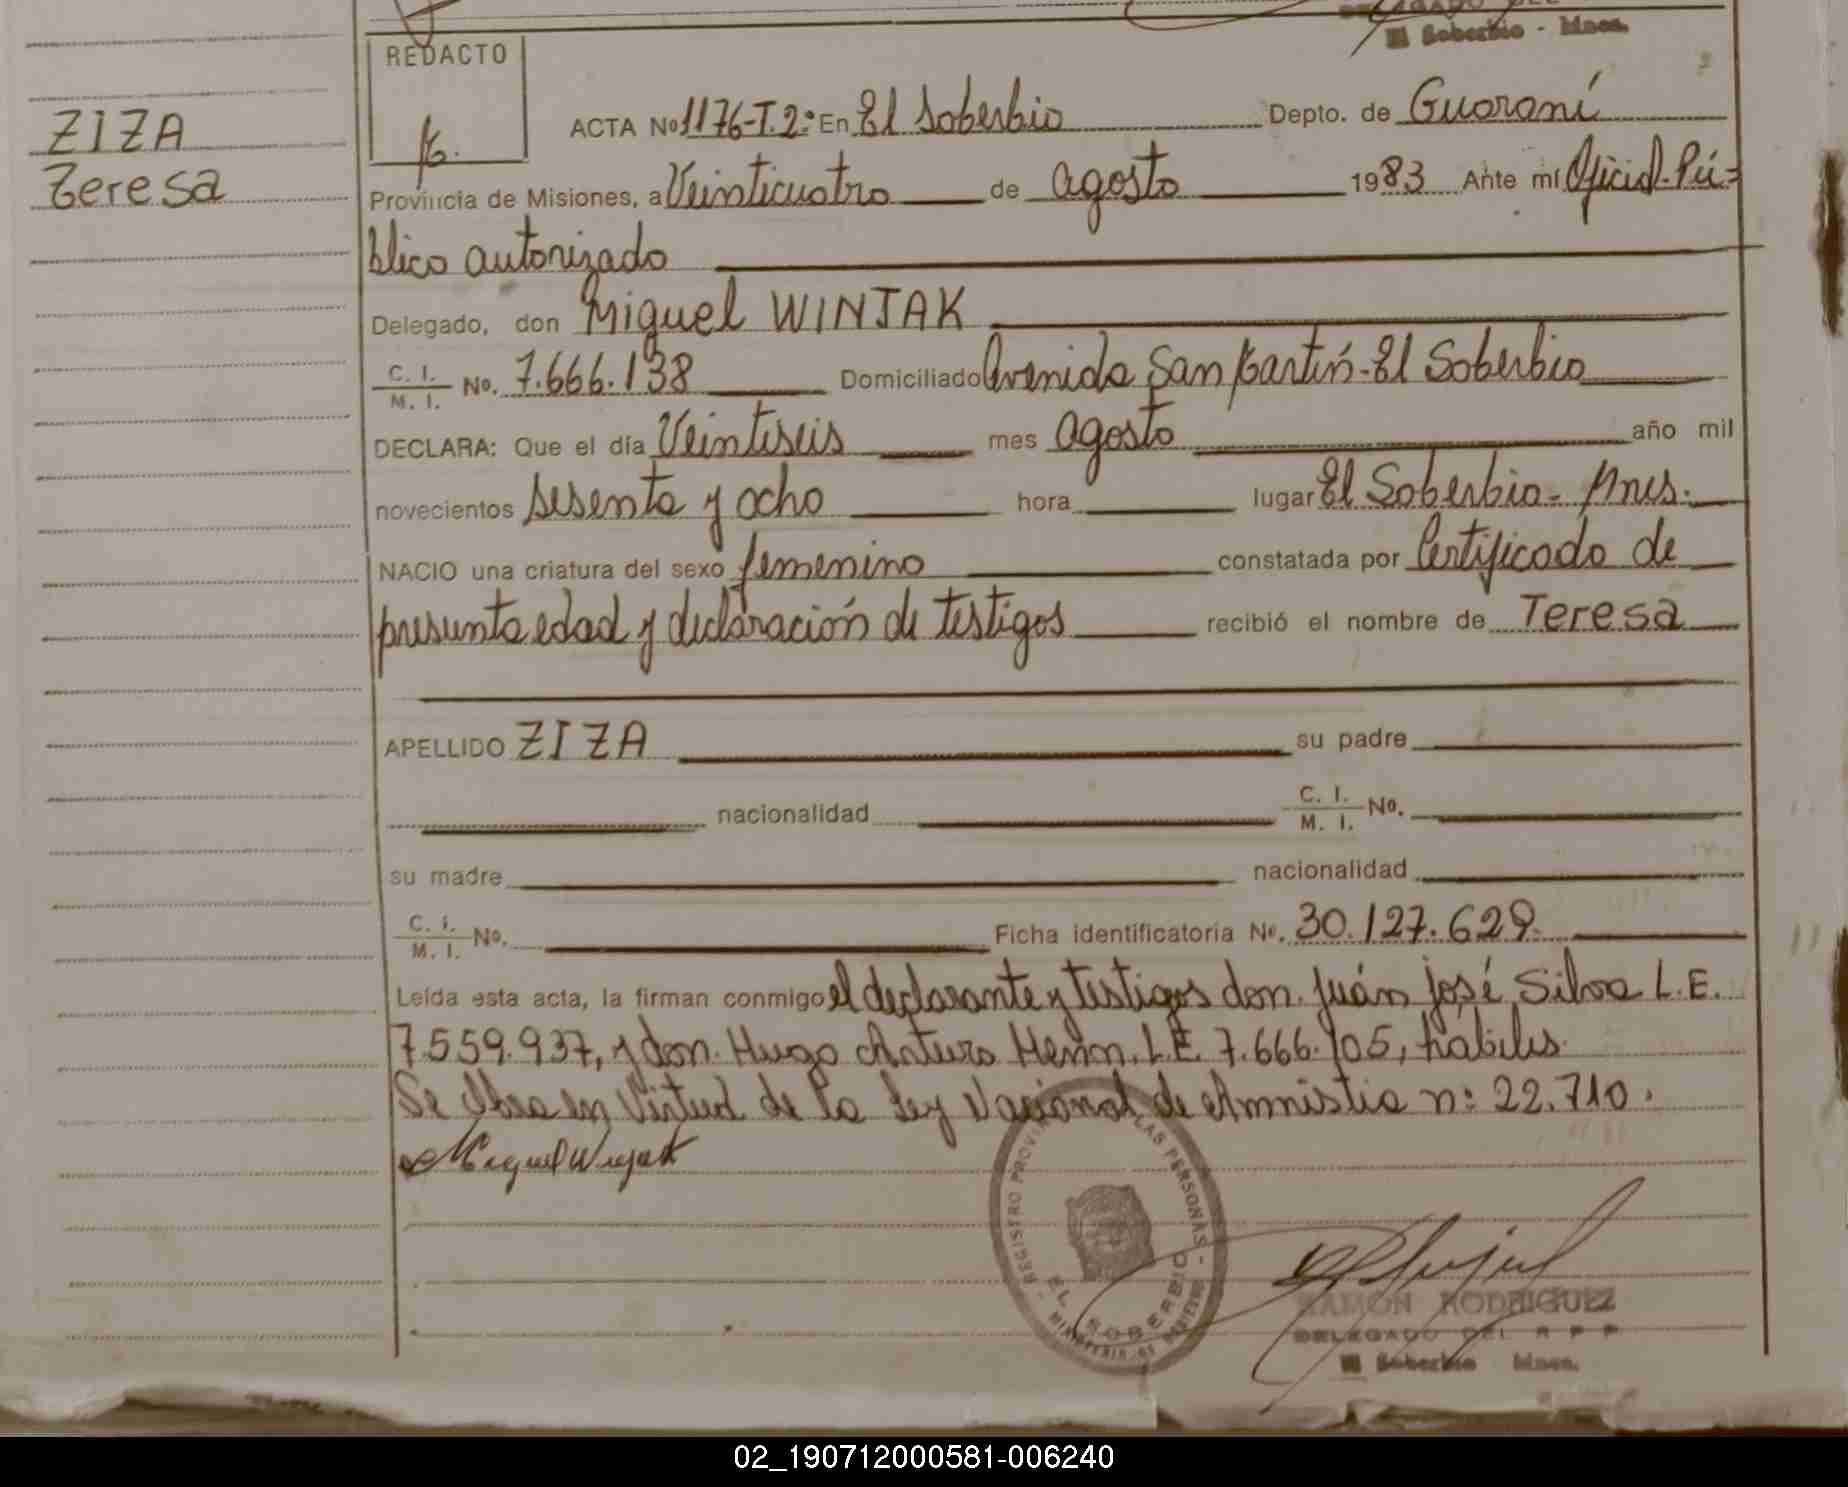 El Soberbio - Mnes.
REDACTO
ZIZA
Teresa
ACTA No 1176-T.2º En El Soberbio Depto. de Guaraní
Provincia de Misiones, a Veinticuatro de agosto 1983 Ante mí Oficial Pú=
blico autorizado
Delegado, don Miguel WINJAK
C. I. / M. I. No. 7.666.138 Domiciliado Avenida San Martín - El Soberbio
DECLARA: Que el día Veintiseis mes agosto año mil
novecientos sesenta y ocho hora lugar El Soberbio - Mnes.
NACIO una criatura del sexo femenino constatada por Certificado de
presunta edad y declaración de testigos recibió el nombre de Teresa
APELLIDO ZIZA su padre
nacionalidad C. I. / M. I. No.
su madre nacionalidad
C. I. / M. I. No. Ficha identificatoria No. 30.127.629
Leída esta acta, la firman conmigo el declarante y testigos don Juán José Silva L.E.
7.559.937, y don Hugo Arturo Henn. L.E. 7.666.105, hábiles.
Se labra en Virtud de la Ley Nacional de Amnistia n: 22.710.
Miguel Winjak
REGISTRO PROVINCIAL DE LAS PERSONAS
EL SOBERBIO
RAMON RODRIGUEZ
DELEGADO DEL R P P
El Soberbio Mnes.
02_190712000581-006240